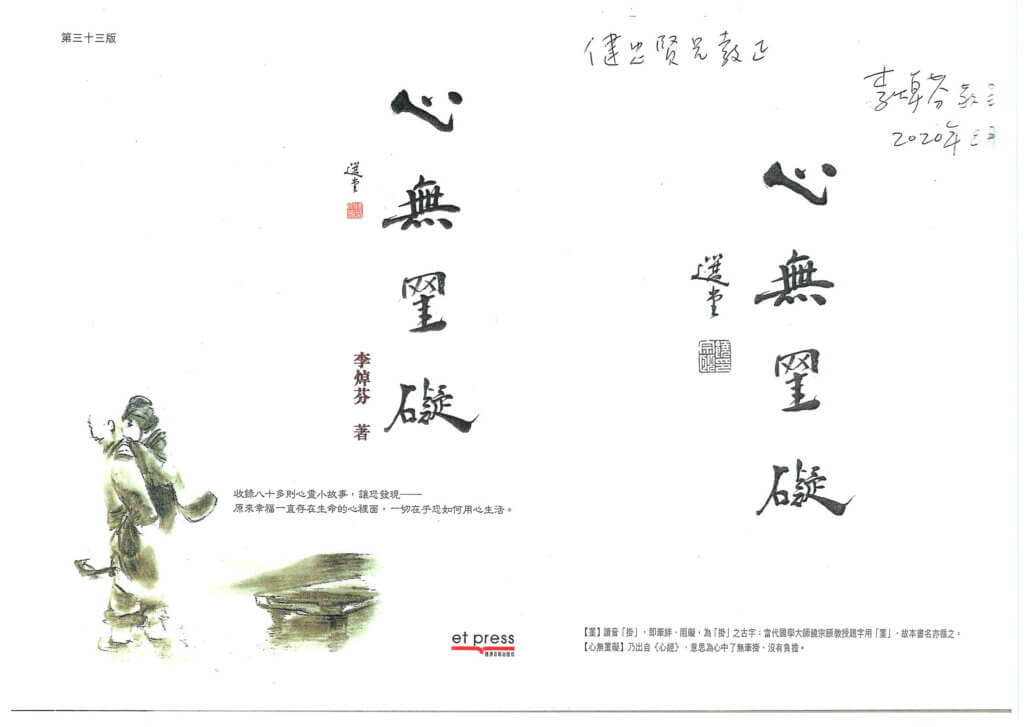 第三十三版
心無罣礙
選堂
李焯芬 著
收錄八十多則心靈小故事，讓您發現──
原來幸福一直存在生命的心裡面，一切在乎您如何用心生活。
et press
健忠賢兄教正
李焯芬
2020年
心無罣礙
選堂
【罣】讀音「掛」，即牽絆、阻礙，為「掛」之古字；當代國學大師饒宗頤教授題字用「罣」，故本書名亦循之。
【心無罣礙】乃出自《心經》，意思為心中了無牽掛，沒有負擔。